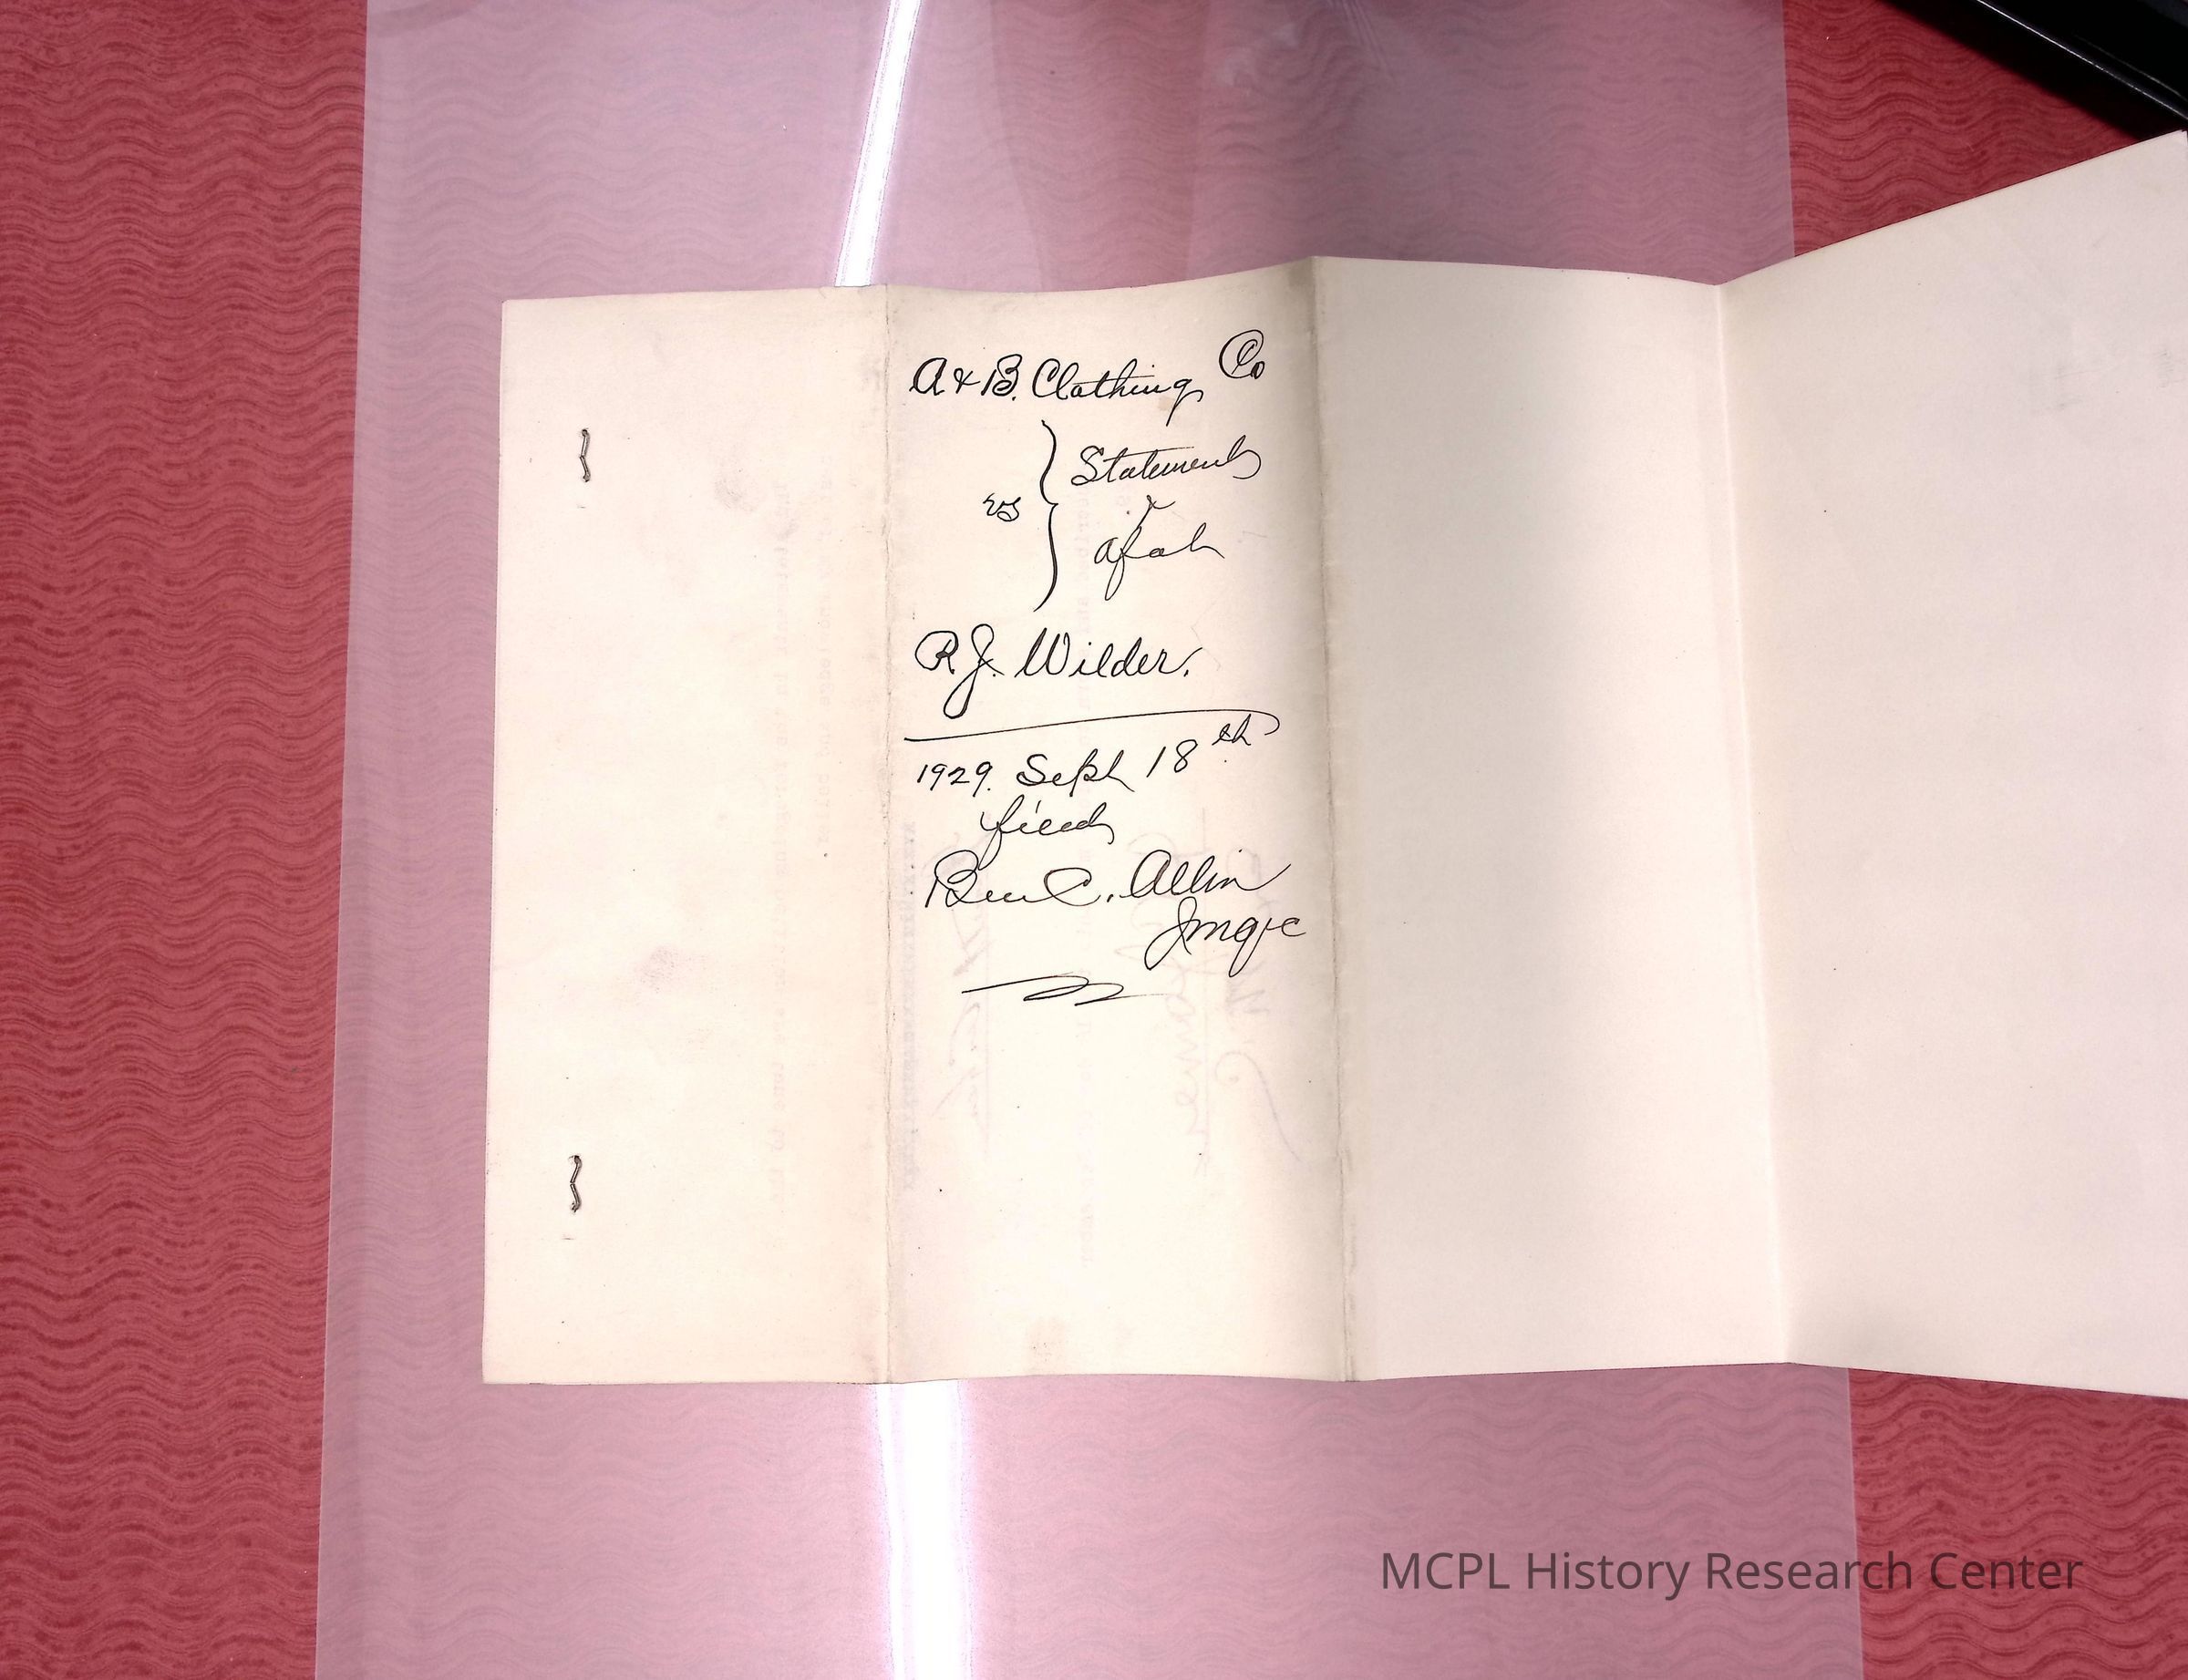 A & B. Clothing Co
vs } Statement
&
afdt
R.J. Wilder.
1929. Sept 18th
filed
Ben C. Allin
JMCPC
MCPL History Research Center